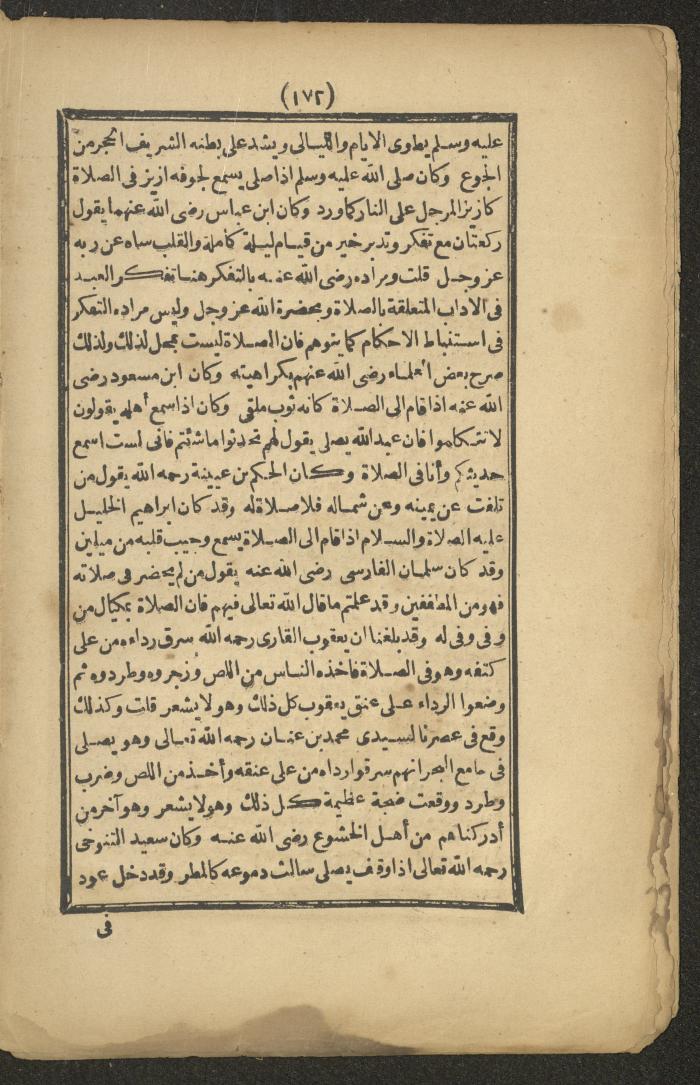 (١٧٢)
عليه وسلم يطوى الايام والليالى ويشد على بطنه الشريف الحجر من
الجوع وكان صلى الله عليه وسلم اذا صلى يسمع لجوفه ازيز فى الصلاة
كازيز المرجل على النار كما ورد وكان ابن عباس رضى الله عنهما يقول
ركعتان مع تفكر وتدبر خير من قيام ليلة كاملة والقلب ساه عن ربه
عز وجل قلت ومراده رضى الله عنه بالتفكر هنا تفكر العبد
فى الاداب المتعلقة بالصلاة وبحضرة الله عز وجل وليس مراده التفكر
فى استنباط الاحكام كما يتوهم فان الصلاة ليست بمحل لذلك ولذلك
صرح بعض العلماء رضى الله عنهم بكراهيته وكان ابن مسعود رضى
الله عنه اذا قام الى الصلاة كانه ثوب ملقى وكان اذا سمع أهله يقولون
لا تتكلموا فان عبد الله يصلى يقول لهم تحدثوا ما شئتم فانى لست اسمع
حديثكم وأنا فى الصلاة وكان الحكم بن عيينة رحمه الله يقول من
تلفت عن يمينه وعن شماله فلا صلاة له وقد كان ابراهيم الخليل
عليه الصلاة والسلام اذا قام الى الصلاة يسمع وجيب قلبه من ميلين
وقد كان سلمان الفارسى رضى الله عنه يقول من لم يحضر فى صلاته
فهو من المطففين وقد علمتم ما قال الله تعالى فيهم فان الصلاة بمكيال من
وفى وفى له وقد بلغنا ان يعقوب القارى رحمه الله سرق رداءه من على
كتفه وهو فى الصلاة فاخذه الناس من اللص وزجروه وطردوه ثم
وضعوا الرداء على عنق يعقوب كل ذلك وهو لا يشعر قلت وكذلك
وقع فى عصرنا لسيدى محمد بن عنان رحمه الله تعالى وهو يصلى
فى جامع البحر انهم سرقوا رداءه من على عنقه وأخذ من اللص وضرب
وطرد ووقعت ضجة عظيمة كل ذلك وهو لا يشعر وهو آخر من
أدركناهم من أهل الخشوع رضى الله عنه وكان سعيد التنوخى
رحمه الله تعالى اذا وقف يصلى سالت دموعه كالمطر وقد دخل عود
فى